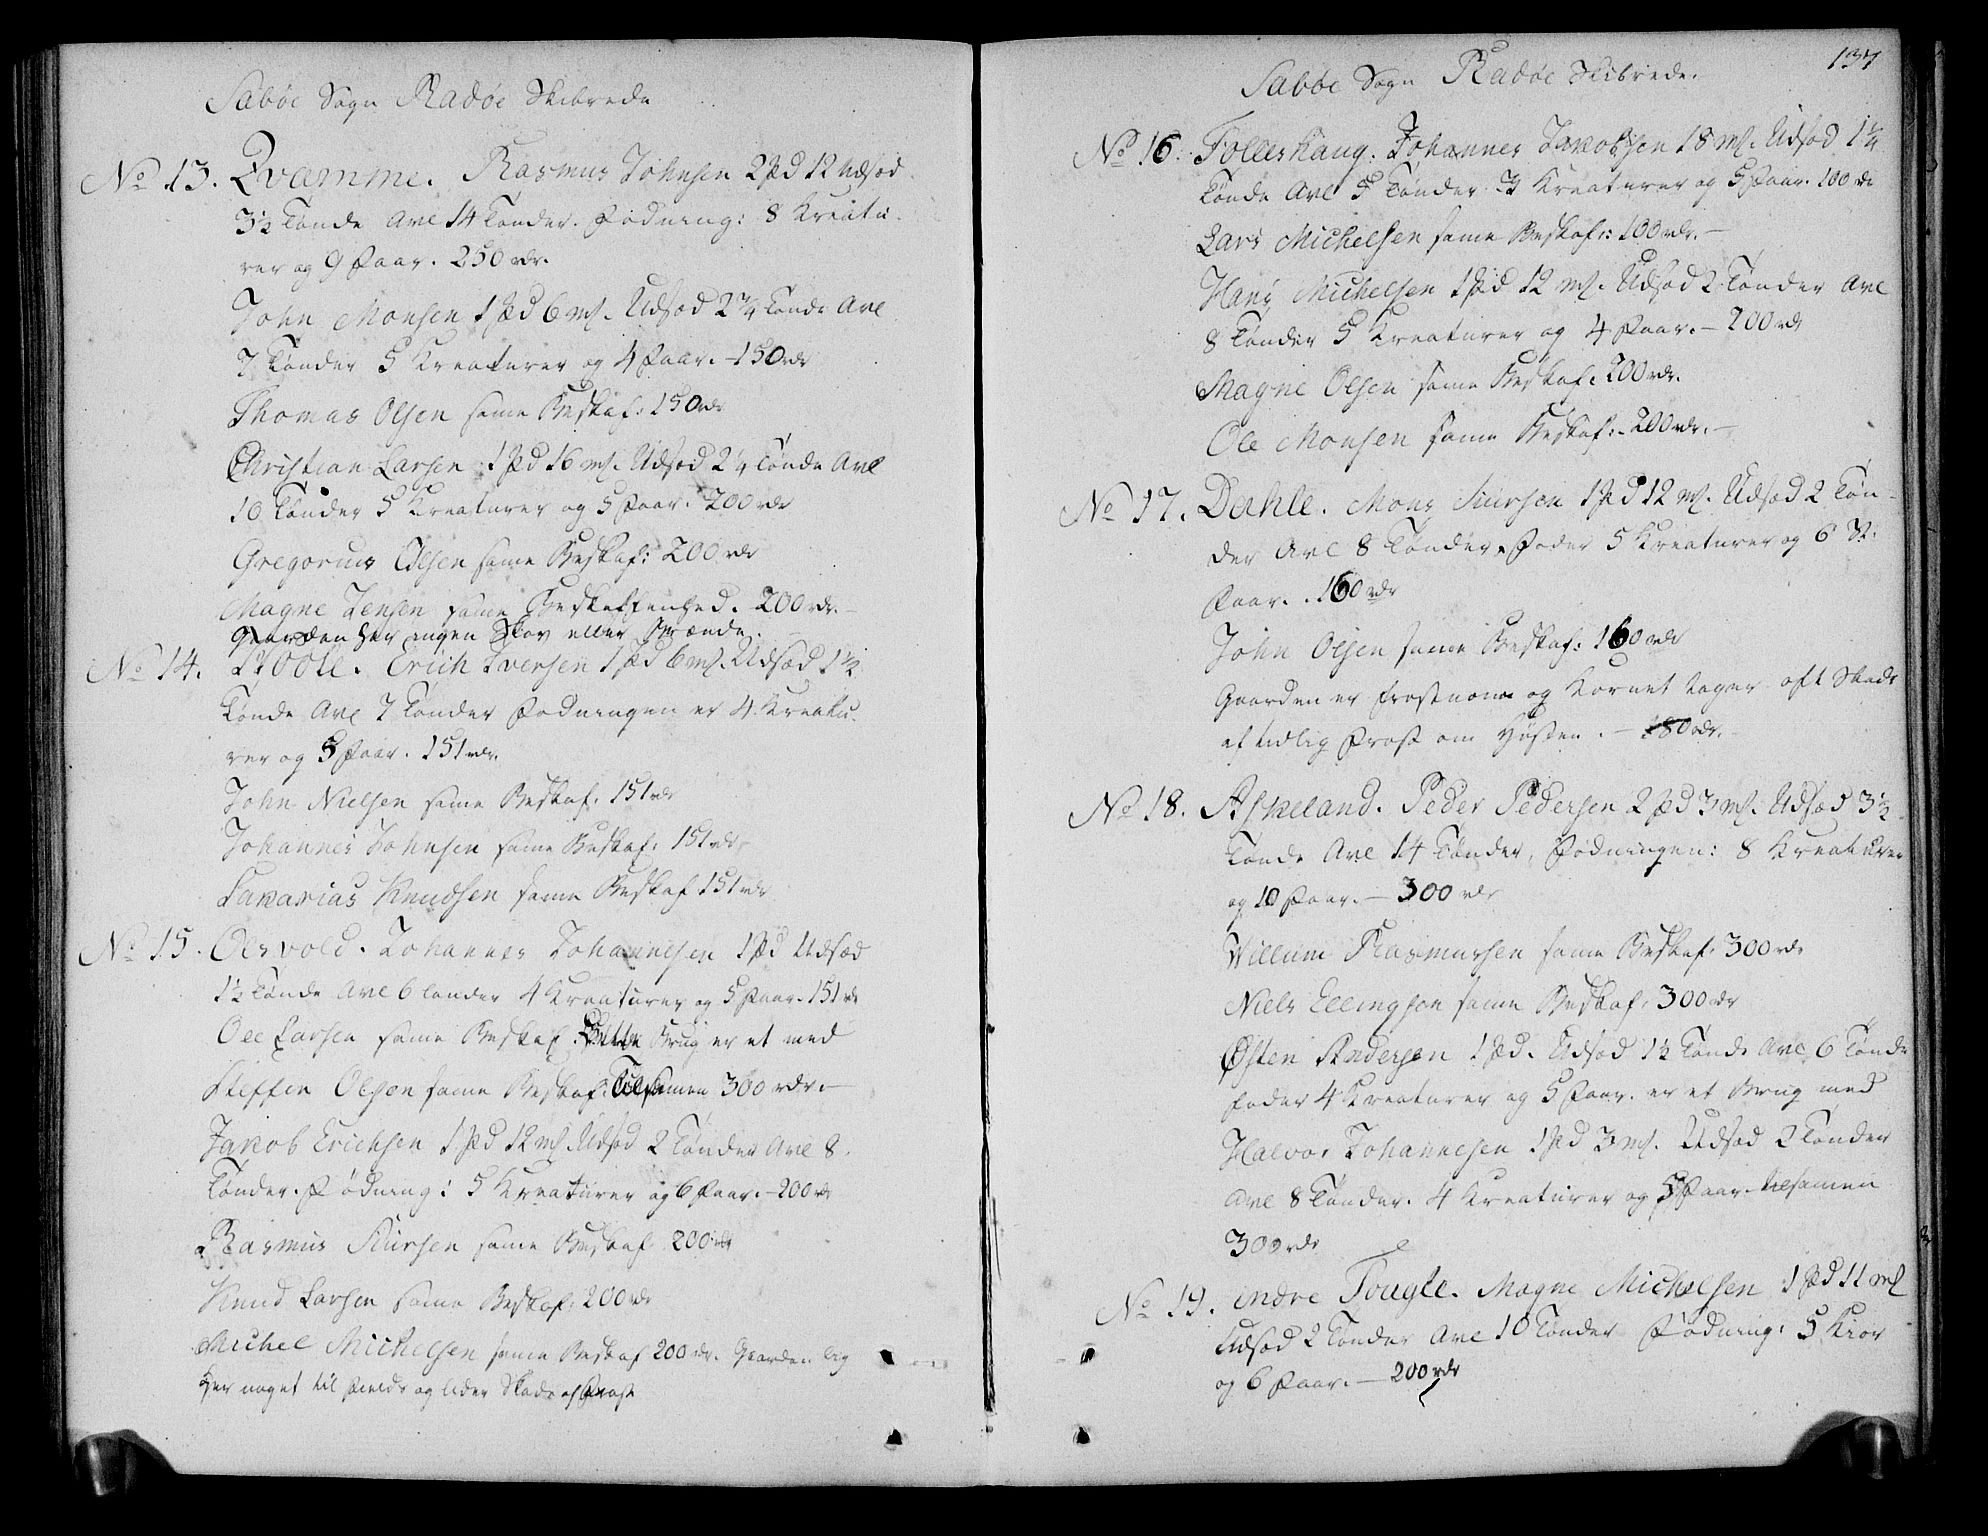 Sæbøe Sogn Radøe Skibrede
No 13. Qvamme. Rasmus Johnsen 2 Pd 12 Udsæd
3½ Tønde Avl 14 Tønder. Fødning: 8 Kreatu-
rer og 9 Faar. 250 rdr.
John Monsen 1 Pd 6 mß. Udsæd 2¼ Tønde Avl
7 Tønder 5 Kreaturer og 4 Faar. - 150 rdr
Thomas Olsen samme Beskaf: 150 rdr
Christian Larsen 1 Pd 16 mß. Udsæd 2¼ Tønde Avl
10 Tønder 5 Kreaturer og 5 Faar. 200 rdr
Gregorius Olsen samme Beskaf: 200 rdr
Magne Jensen samme Beskaffenhed. 200 rdr. -
Gaarden har ingen Skov eller Brænde.
No 14. Erich Iversen 1 Pd 6 mß. Udsæd 1½
Tønde Avl 7 Tønder Fødningen er 4 Kreatu-
rer og 5 Faar. 151 rdr.
John Nielsen samme Beskaf: 151 rdr
Johannes Johnsen samme Beskaf: 151 rdr
Sakarias Knudsen samme Beskaf 151 rdr
No 15. Olsvold. Johannes Johannesen 1 Pd Udsæd
1½ Tønde Avl 6 Tønder 4 Kreaturer og 5 Faar. 151 rdr
Ole Larsen samme Beskaf. Dette Brug er et med
Steffen Olsen samme Beskaf: Tilsamen 300 rdr. -
Jakob Erichsen 1 Pd 12 mß. Udsæd 2 Tønder Avl 8
Tønder. Fødning: 5 Kreaturer og 6 Faar. - 200 rdr
Rasmus Siursen samme Beskaf 200 rdr
Knud Larsen samme Beskaf: 200 rdr
Michel Michelsen samme Beskaf 200 rdr. Gaarden lig
her noget til Fields og lider Skade af Frost
137
Sæbøe Sogn Radøe Skibrede.
No 16. Folleshaug. Johannes Jakobsen 18 mß. Udsæd 1¼
Tønde Avl 5 Tønder. 3 Kreaturer og 5 Faar. 100 rdr
Lars Michelsen samme Beskaf: 100 rdr. -
Hans Michelsen 1 Pd 12 mß. Udsæd 2 Tønder Avl
8 Tønder 5 Kreaturer og 4 Faar. - 200 rdr
Magne Olsen samme Beskaf: 200 rdr.
Ole Monsen samme Beskaf: - 200 rdr. -
No 17. Dahle. Mons Siursen 1 Pd 12 mß. Udsæd 2 Tøn-
der Avl 8 Tønder. Føder 5 Kreaturer og 6 St:
Faar. . 160 rdr
John Olsen samme Beskaf: 160 rdr
Gaarden er frostnom og Kornet tager oft Skade
af tidlig Frost om Høsten. - 180 rdr.
No 18. Askeland. Peder Pedersen 2 Pd 3 mß. Udsæd 3½
Tønde Avl 14 Tønder, Fødningen: 8 Kreaturer
og 10 Faar. - 300 rdr
Willum Rasmusen samme Beskaf: 300 rdr
Niels Ellingsen samme Beskaf: 300 rdr
Østen Andersen 1 Pd. Udsæd 1½ Tønde Avl 6 Tønde
føder 4 Kreaturer og 5 Faar. er et Brug med
Halvor Johannesen 1 Pd 3 mß. Udsæd 2 Tønder
Avl 8 Tønder. 4 Kreaturer og 5 Faar tilsamen
300 rdr
No 19. indre Tougle. Magne Michelsen 1 Pd 11 mß
Udsæd 2 Tønder Avl 10 Tønder Fødning: 5 Kiør
og 6 Faar. - 200 rdr